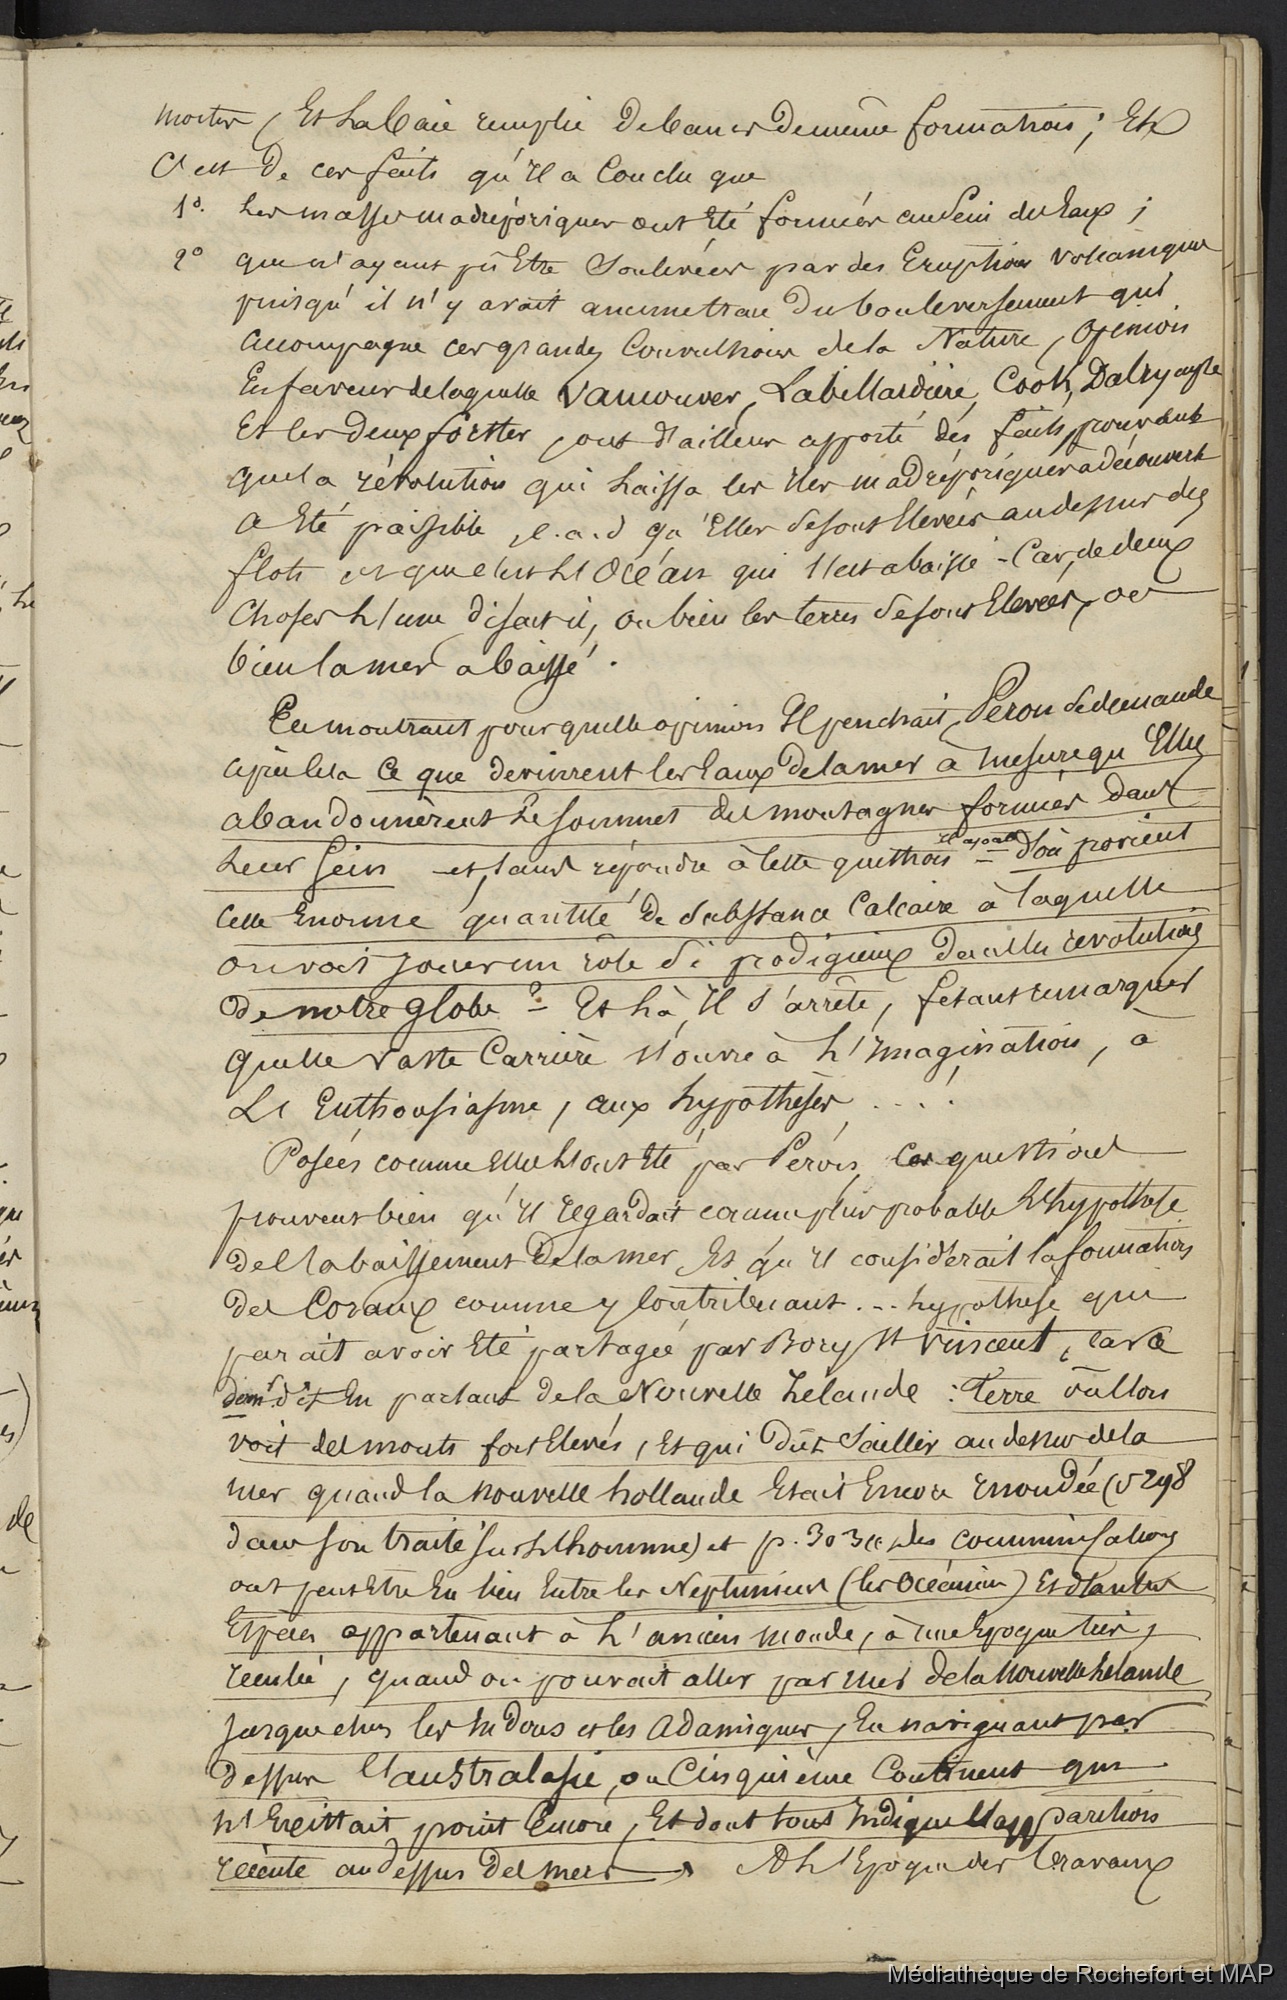 mortes, Et La baie remplie de bancs de même formation ; Et
C'est De ces faits qu'Il a Conclu que
1°. Les masses madréporiques ont Eté formées au Sein des Eaux ;
2° que n'ayant pû Etre Soulevées par des Eruptions Volcaniques
puisqu'il n'y avait aucune trace Du bouleversement qui
accompagne ces grandes Convulsions de la Nature, Opinion
En faveur de laquelle Vancouver, Labillardière, Cook, Dalrymple
Et les Deux forster, ont d'ailleurs apporté des faits, prouvant
que la révolution qui Laissa les Iles madréporiques à découvert
a Eté paisible, c.a.d qu'Elles se sont Elevées au dessus des
flots ou que c'est L'Océan qui s'est abaissé - Car, de deux
Choses L'une disait il, ou bien les terres se sont Elevées, ou
bien la mer a baissé.
En montrant pour quelle opinion Il penchait, Péron se demande
après cela ce que devinrent les Eaux de la mer à mesure qu'Elles
abandonnèrent Le sommet des montagnes formées dans
Leur Sein et, sans répondre à cette question Il ajoute = d'où provient
cette Enorme quantité De Substance Calcaire à laquelle
on voit jouer un rôle Si prodigieux dans les révolutions
De notre globe ? - Et Là, Il s'arrête, faisant remarquer
quelle vaste Carrière s'ouvre à L'Imagination, à
L'Enthousiasme, aux hypothèses . . . . !
Posées comme elles L'ont Eté par Péron, Ces questions
prouvent bien qu'Il regardait comme plus probable L'hypothese
de l'abaissement de la mer, Et qu'Il considérait la formation
des Coraux comme y Contribuant ... hypothese qui
parait avoir Eté partagée par Bory St Vincent, car ce
dernr. dit En parlant de la Nouvelle Zélande : Terre où l'on
voit des monts fort Elevés, Et qui dût Saillir au dessus de la
mer quand la nouvelle hollande Etait Encore Innondée (v 298
dans son traité sur L'homme) et p. 303 des communications
ont peut Etre Eu lieu Entre les Neptuniens (les Océaniens) Et d'autres
Espèces appartenant à L'ancien monde, à une Epoque très,
reculée, quand on pouvait aller par mer de la Nouvelle Zélande
jusque chez les Indous et les Adamiques, En naviguant par
dessus l'australasie, ou Cinquième Continent qui
n'Existait point Encore, Et dont tout Indique l'apparition
récente au dessus des mers → A L'Epoque des travaux
Médiathèque de Rochefort et MAP